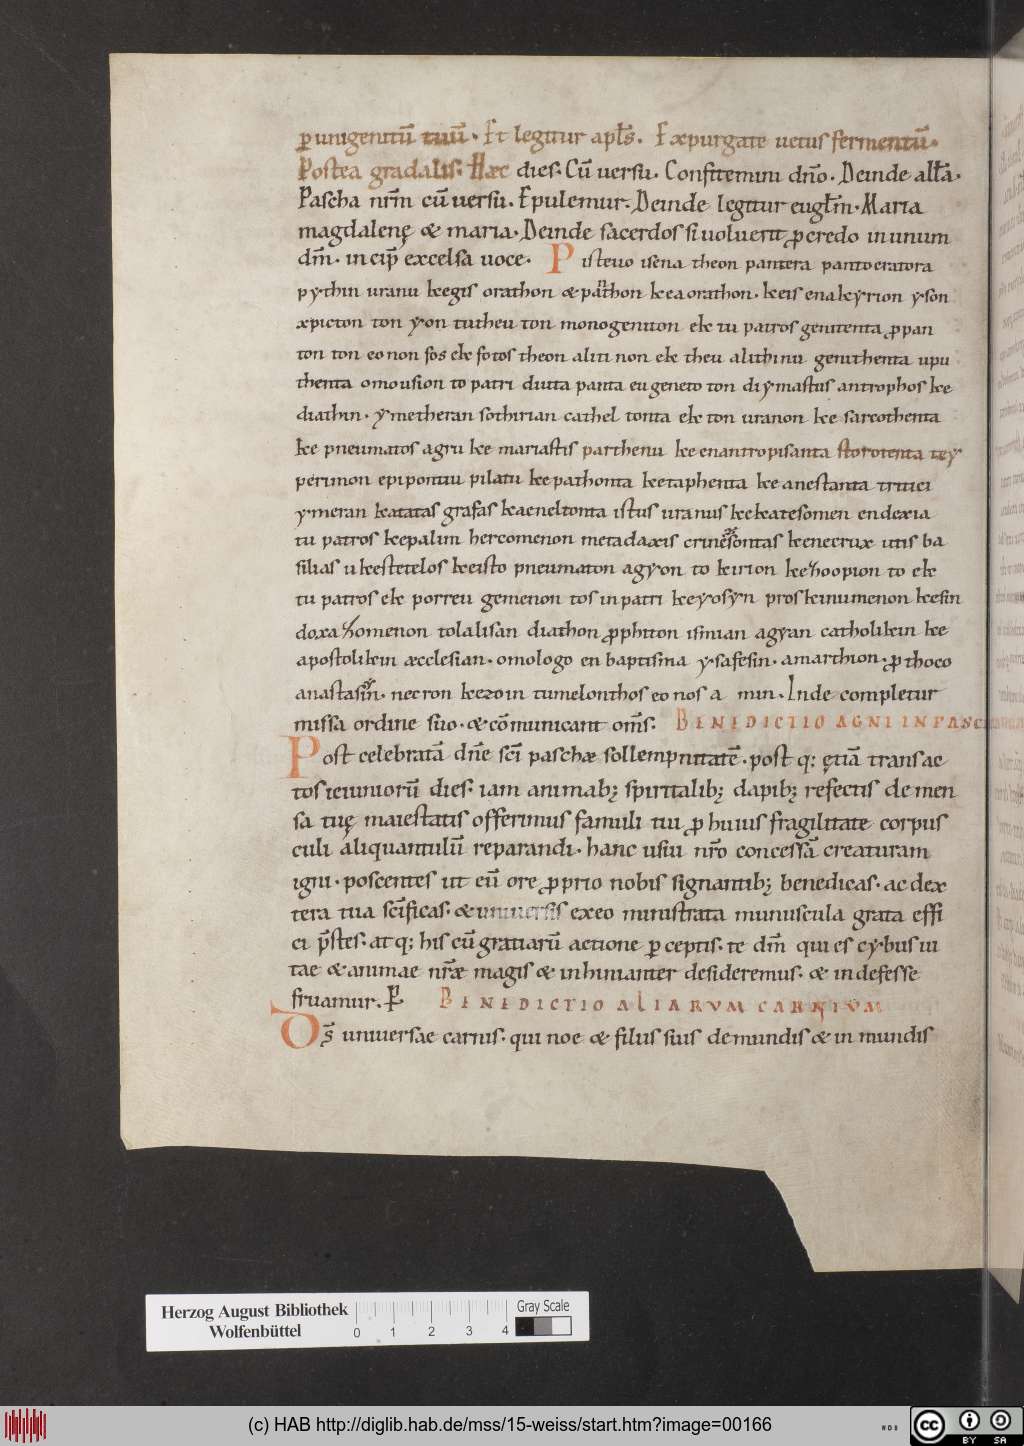 ꝑ unigenitū tuū · Et legitur apłs. Exꝑpurgate uetus fermentū·
Postea gradalis· Hæc dies· Cū uersu· Confitemini dño· Deinde all̄a·
Pascha nr̄m cū uersu· Epulemur· Deinde legitur eugl̄m· Maria
magdalenę & maria· Deinde sacerdos si uoluerit ꝓ credo in unum
dm̄· incip̄ excelsa uoce· Pisteuo isena theon pantera pantocratora
pythin uranu keegis orathon & pāthon keaorathon· keis ena kyrion yson
xpicton ton yon tutheu ton monogeniton ek tu patros genitenta ꝓpan
ton ton eonon fos ek fotos theon aliti non ek theu alithinu genithenta upu
thenta omousion to patri diuta panta eugeneto ton di ymastus antrophos ke
diathin· ymetheran sothirian cathel tonta ek ton uranon ke sarcothenta
ke pneumatos agru ke mariastis parthenu ke enantropisanta storotenta tey
perimon epipontiu pilatu kepathonta ketaphenta ke anestanta tritiei
ymeran katatas grafas kaeneltonta istus uranus kekatesomen endexia
tu patros kepalim hercomenon metadaxis crinesontas kenecrux utis ba
silias u kestetelos keisto pneumaton agyon to kirion kezoopion to ek
tu patros ek porreu gemenon tos inpatri keyosyn proskinumenon kesin
doxazomenon tolalisan diathon ꝓphiton ismian agyan catholikin ke
apostolikin æcclesian· omologo en baptisma y·safesin· amarthion· ꝓthoco
anastasin· necron kezoin tumelonthos eonos a min· Inde completur
missa ordine suo· & cōmunicant om̄s. BENEDICTIO AGNI IN PASC
Post celebratā dn̄e sc̄i paschæ sollempnitatē· post q; ętiā transac
tos ieiuniorū dies· iam animab; spiritalib; dapib; refectis de men
sa tuę maiestatis offerimus famuli tui ꝓ huius fragilitate corpus
culi aliquantulū reparandi· hanc usui nr̄o concessā creaturam
igni· poscentes ut eū ore ꝓprio nobis signantib; benedicas· ac dex
tera tua sc̄ificas· & uniuersis exeo ministrata munuscula grata effi
ci p̄stes· at q; his cū gratiarū actione ꝑceptis· te dm̄ qui es cybus ui
tae & animae nr̄æ magis & inhinianter desideremus· & indefesse
fruamur. P̄ BENEDICTIO ALIARVM CARNIVM
Ds̄ uniuersae carnis· qui noe & filiis suis de mundis & in mundis
Herzog August Bibliothek
Wolfenbüttel
0 1 2 3 4
Gray Scale
(c) HAB http://diglib.hab.de/mss/15-weiss/start.htm?image=00166
cc BY SA